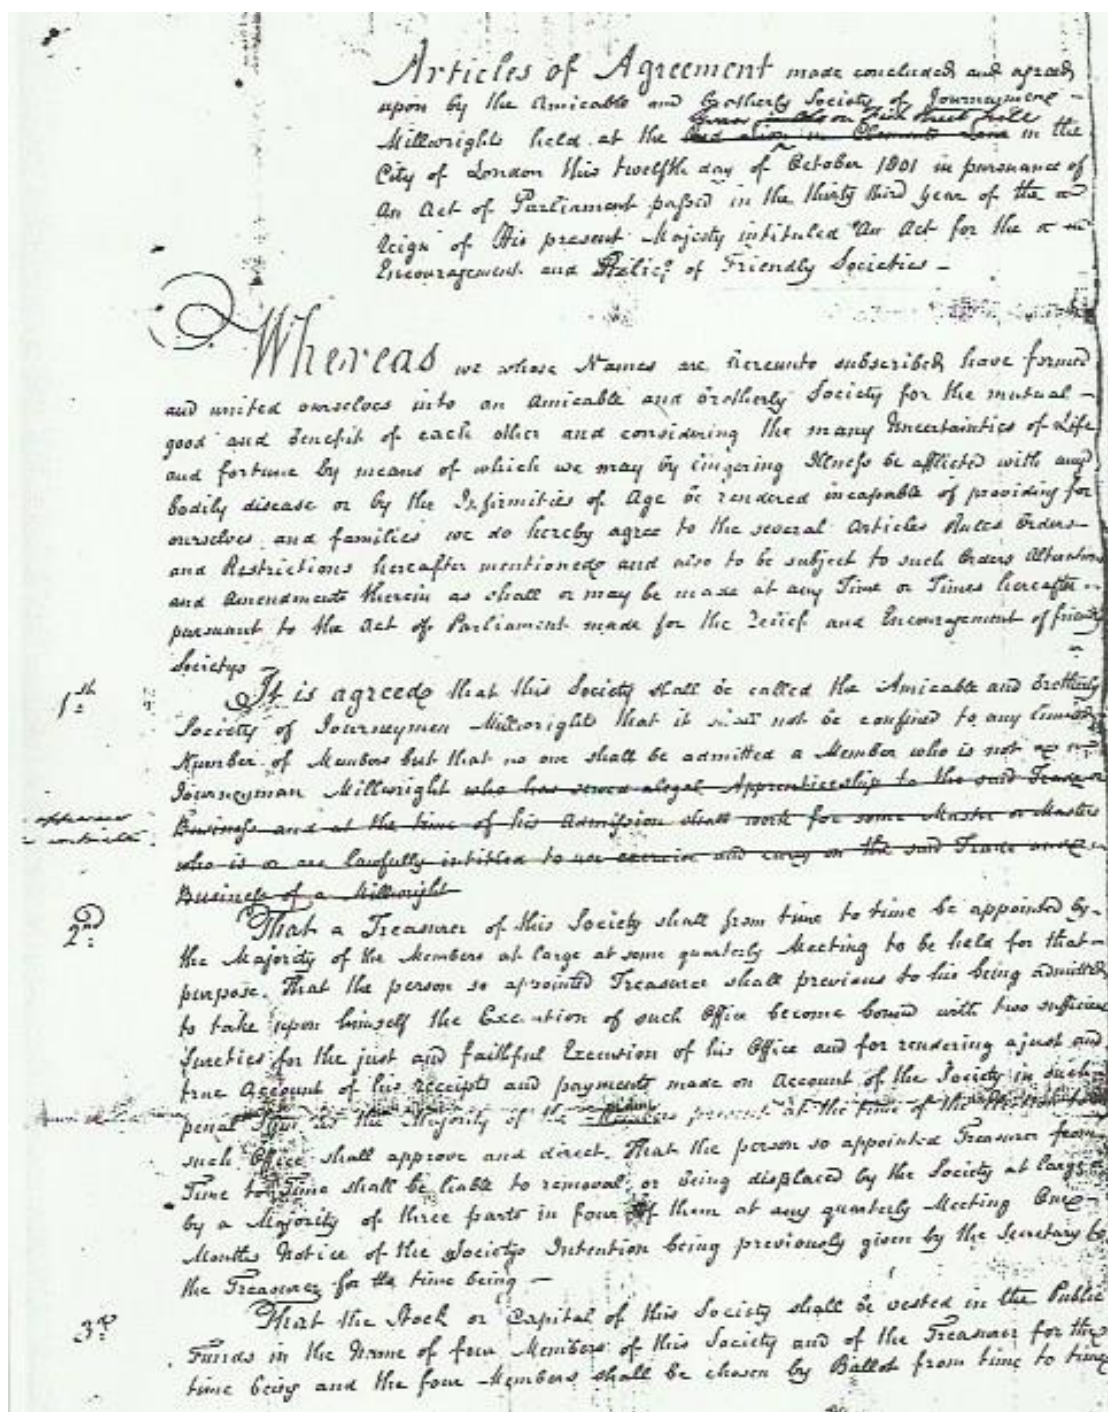 Articles of Agreement made concluded and agreed
upon by the Amicable and Brotherly Society of Journeymen
Swan Fish Street Hill
Millwrights held at the Red Lion in Clements Lane in the
City of London this twelfth day of October 1801 in pursuance of
An Act of Parliament passed in the thirty third year of the
Reign of His present Majesty intituled An Act for the
Encouragement and Relief of Friendly Societies —
Whereas we whose Names are hereunto subscribed have formed
and united ourselves into an Amicable and Brotherly Society for the mutual
good and Benefit of each other and considering the many Uncertainties of Life
and fortune by means of which we may by lingering Illness be afflicted with any
bodily disease or by the Infirmities of Age be rendered incapable of providing for
ourselves and families we do hereby agree to the several Articles Rules Orders
and Restrictions hereafter mentioned and also to be subject to such Orders Alterations
and Amendments therein as shall or may be made at any Time or Times hereafter
pursuant to the Act of Parliament made for the Relief and Encouragement of friendly
Societys —
1st It is agreed that this Society shall be called the Amicable and Brotherly
Society of Journeymen Millwrights that it shall not be confined to any limited
Number of Members but that no one shall be admitted a Member who is not
Journeyman Millwright who has served a legal Apprenticeship to the said Trade or
Business and at the time of his Admission shall work for some Master or Masters
who is or are lawfully intitled to use exercise and carry on the said Trade and
Business of a Millwright
2nd That a Treasurer of this Society shall from time to time be appointed by
the Majority of the Members at large at some quarterly Meeting to be held for that
purpose. That the person so appointed Treasurer shall previous to his being admitted
to take upon himself the Execution of such Office become bound with two sufficient
Sureties for the just and faithful Execution of his Office and for rendering a just and
true Account of his receipts and payments made on Account of the Society in such
penal Sum as the Majority of the Members present at the time of the Election to
such Office shall approve and direct. That the person so appointed Treasurer from
Time to Time shall be liable to removal or being displaced by the Society at large
by a Majority of three parts in four of them at any quarterly Meeting One
Months Notice of the Societys Intention being previously given by the Secretary to
the Treasurer for the time being —
3rd That the Stock or Capital of this Society shall be vested in the Public
Funds in the Name of four Members of this Society and of the Treasurer for the
time being and the four Members shall be chosen by Ballot from time to time